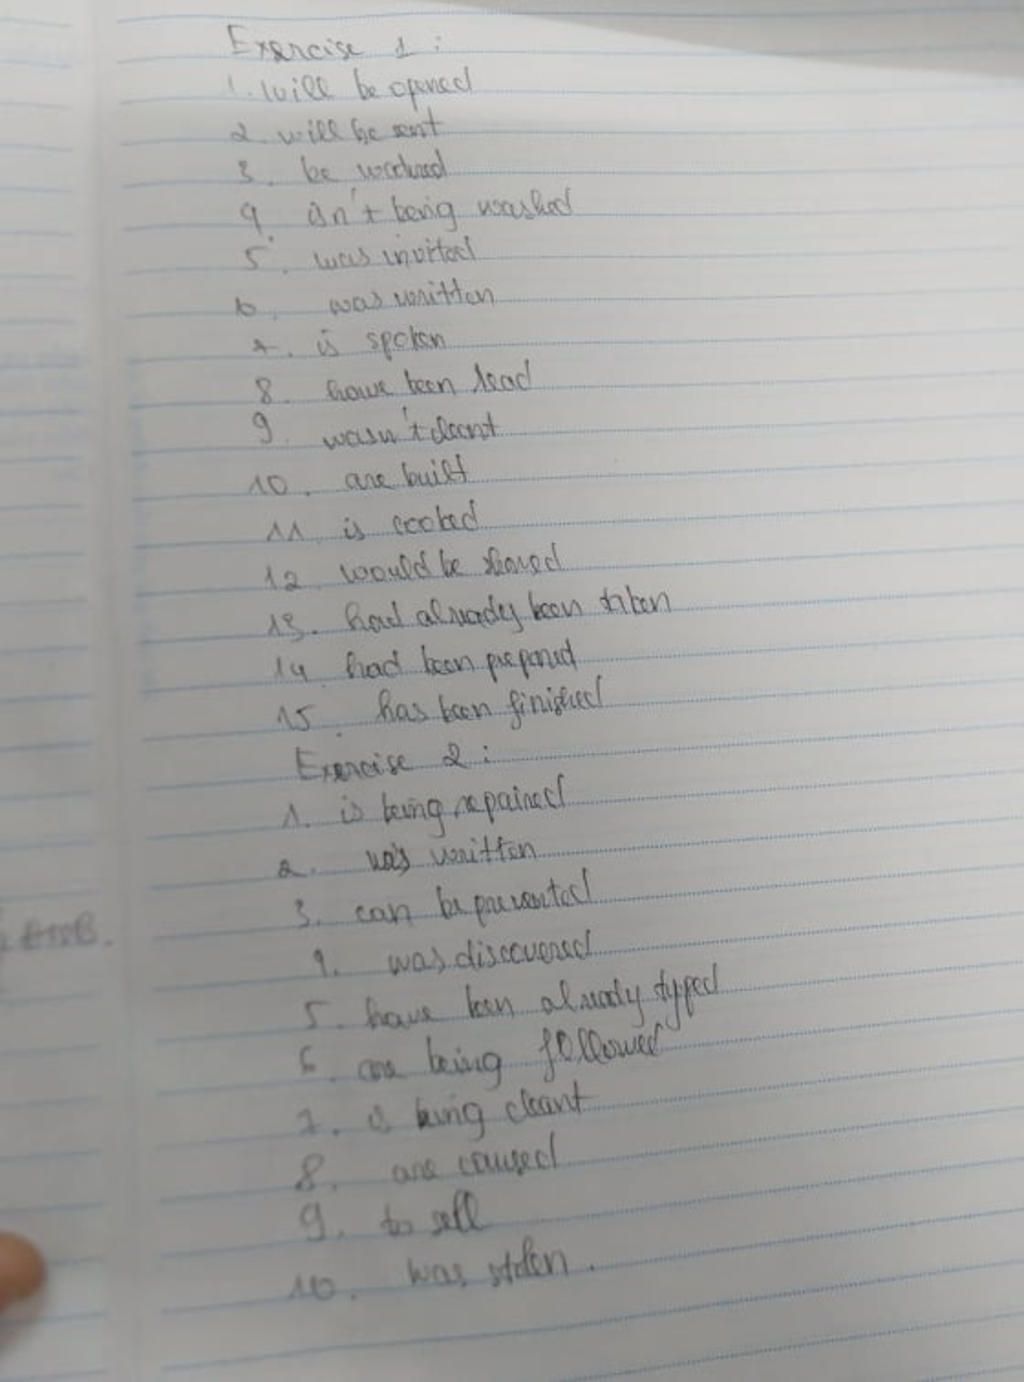 Exercise 1 :
1. will be opened
2. will be sent
3. be worked
4. isn't being washed
5. was invited
6. was written
7. is spoken
8. have been read
9. wasn't cleant
10. are built
11. is cooked
12. would be
13. had already been
14. had been prepared
15. has been finished
Exercise 2 :
1. is being repaired
2. was written
3. can be prevented
4. was discovered
5. have been already typed
6. are being followed
7. is being cleant
8. are caused
9. to sell
10. was stolen.